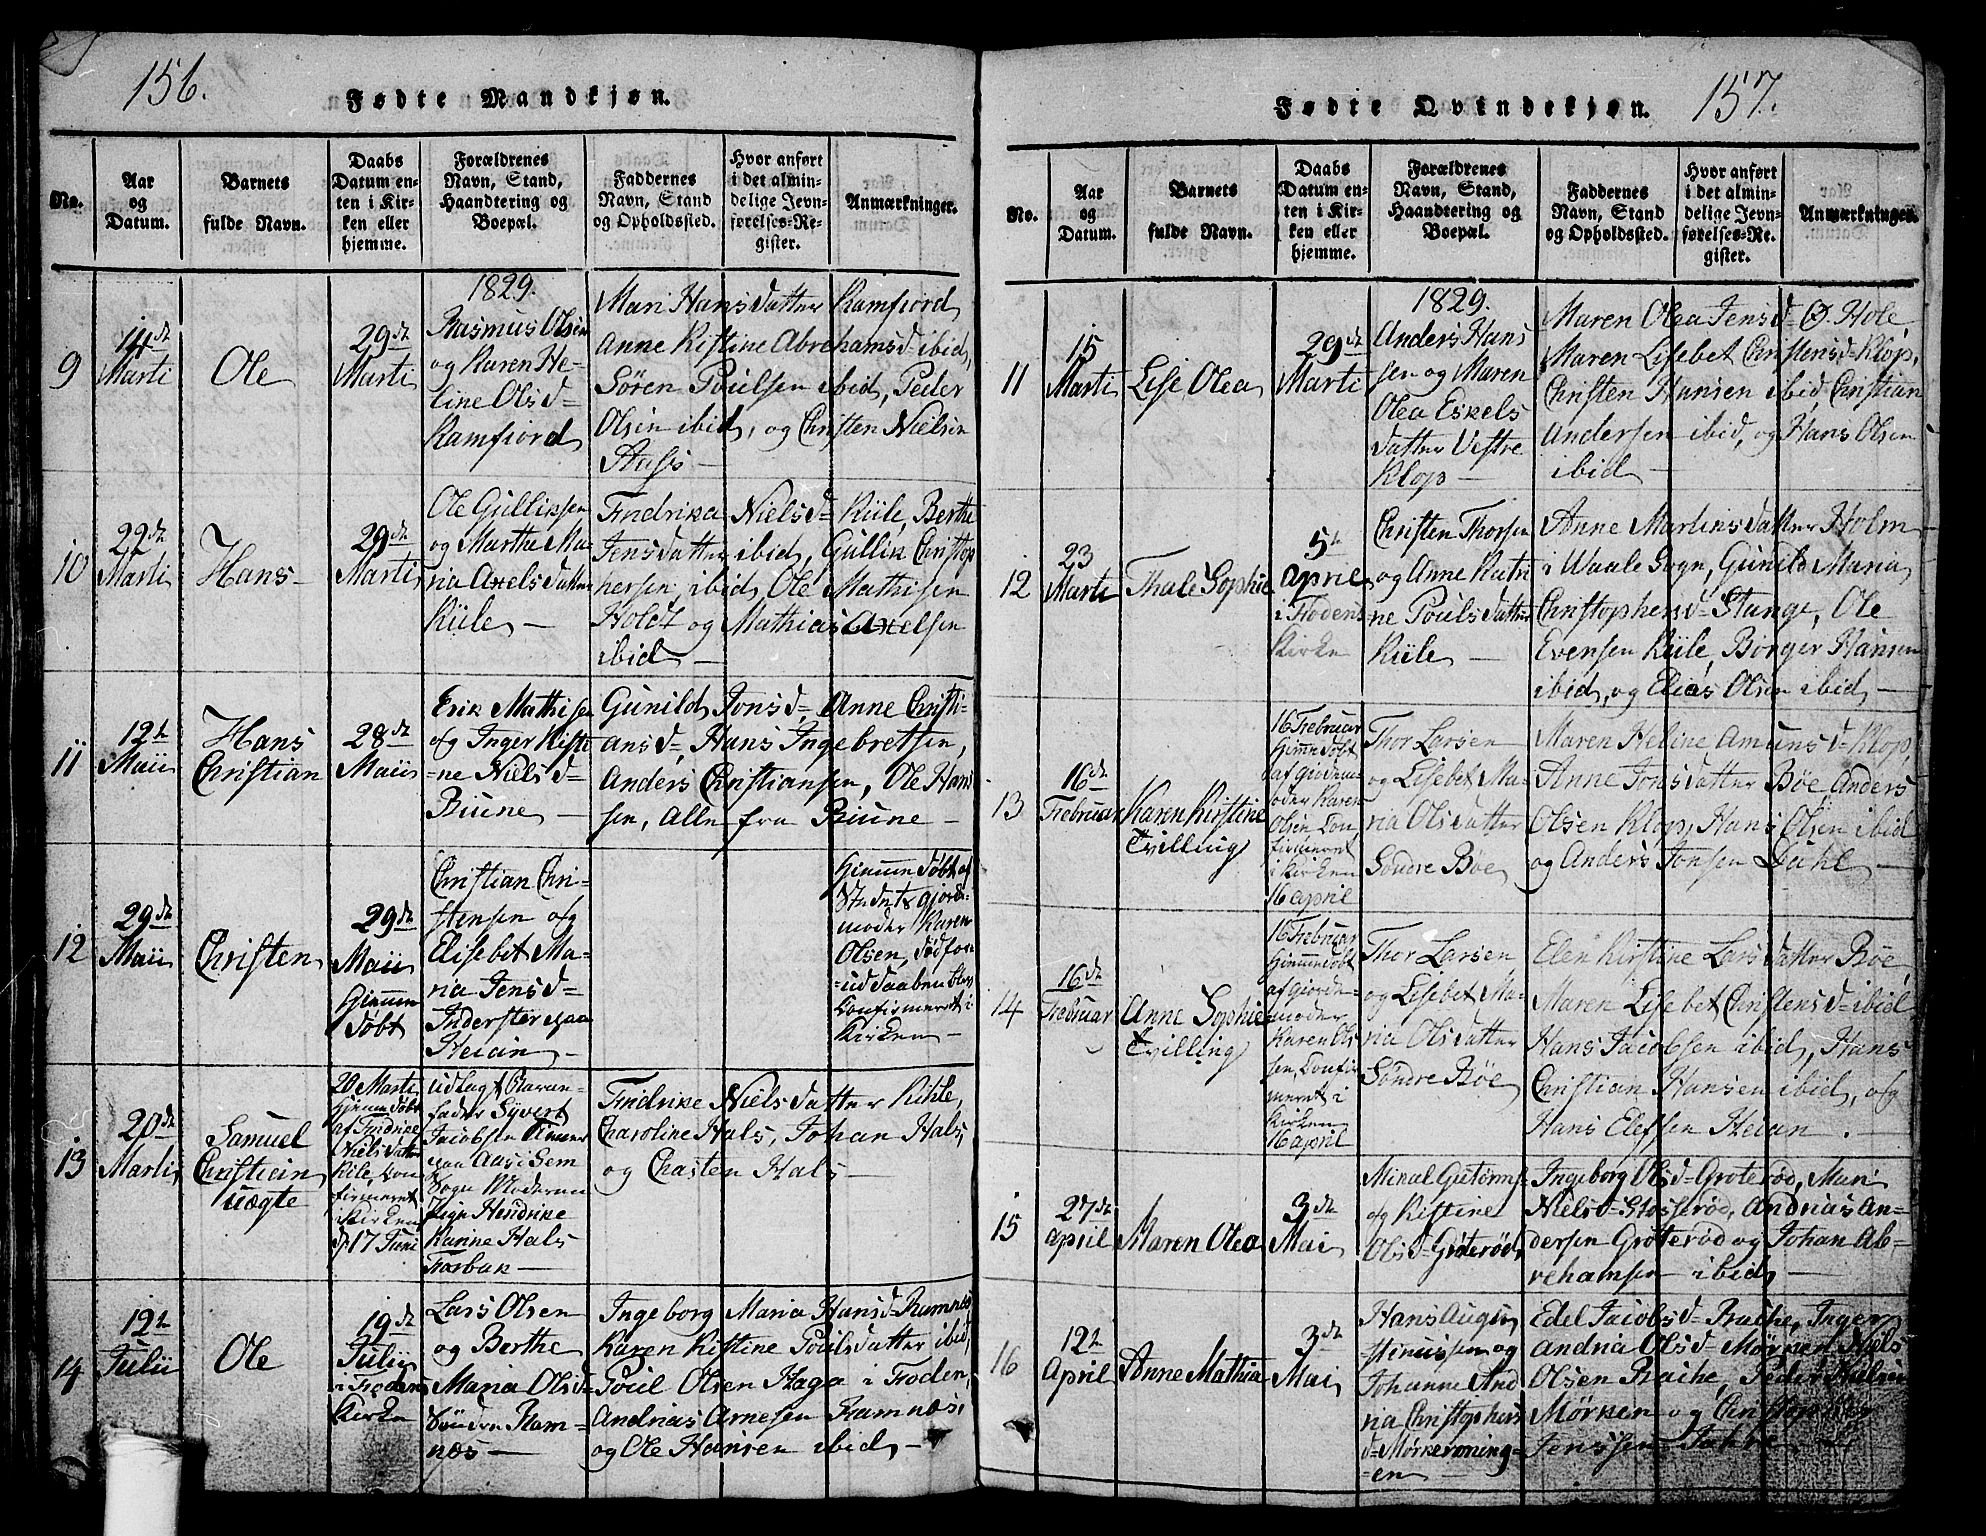 156.
Fødte Mandkjøn.
No.
Aar
og
Datum.
Barnets
fulde Navn.
Daabs
Datum en-
ten i Kir-
ken eller
hjemme.
Forældrenes
Navn, Stand,
Haandtering og
Boepæl.
Faddernes
Navn, Stand
og Opholdssted.
Hvor anført
i det almin-
delige Jevn-
førelses-Re-
gister.
Anmærkninger.
9
14de
Marti
Ole
29de
Marti
1829.
Rasmus Olsen
og Karen He-
line Olsd=
Ramfiord
Mari Hansdatter Ramfiord
Anne Kistine Abrehamsd= ibid,
Søren Poulsen ibid, Peder
Olsen ibid, og Christen Nielsen
Aass-
10
22de
Marti
Hans-
29de
Marti
Ole Gulliksen
og Marthe Ma-
ria Axelsdatter
Kiile -
Fredrika Nielsd= Kiile, Berthe
Jensdatter ibid, Gullik Christop
hersen, ibid, Ole Mathisen
Holdt og Mathias Axelsen
ibid -
11
12te
Maii
Hans
Christian
28de
Maii
Erik Mathisen
og Inger Kisti
=ne Nielsd=
Biune -
Gunild Jonsd, Anne Christi-
ansd= Hans Ingebretsen,
Anders Christiansen, Ole Han
sen, Alle fra Biune -
12
29de
Maii
Christen
29de
Maii
Hiemme
døbt
Christian Chri-
stensen og
Elisebet Ma-
ria Jensd=
Inderster paa
Heian -
Hiemmedøbt af
Moder Karen
Olsen,
Confirmeret i
Kirken -
13
20de
Marti
Samuel
Christian
uægte
20 Marti
Hiemmedøbt
af Fredrike
Nielsdatter
Kile, Con-
firmeret
i Kirken
d 17 Juni
udlagt Barne-
fader Syvert
Jacobsen
paa Aas i Sem
Sogn Moderen
Pige Hendrike
Karine Hals
Forbak -
Fredrike Nielsdatter Kihle,
Charoline Hals, Johan Hals,
og Chasten Hals -
14
12te
Julii
Ole
19de
Julii
i Froden
Kirke
Lars Olsen
og Berthe
Maria Olsd=
Søndre Ram-
næs -
Ingeborg Maria Hansd= Ramnæs
Karen Kistine Poulsdatter ibid,
Poul Olsen Haga i Froden,
Andrias Arnesen Ramnæs,
og Ole Hansen ibid, -
157.
Fødte Qvindekjøn.
No.
Aar
og
Datum.
Barnets
fulde Navn.
Daabs
Datum en-
ten i Kir-
ken eller
hjemme.
Forældrenes
Navn, Stand,
Haandtering og
Boepæl.
Faddernes
Navn, Stand
og Opholdssted.
Hvor anført
i det almin-
delige Jevn-
førelses-Re-
gister.
Anmærkninger.
11
15
Marti
Lise Olea
29de
Marti
1829.
Anders Han
sen og Maren
Olea Eskels
datter Vestre
Klop -
Maren Olea Jensd= Ø. Hole,
Maren Lisebet Christensd= Klop,
Christen Hansen ibid, Christian
Andersen ibid, og Hans Olsen
ibid -
12
23
Marti
Thale Sophie
5te
April
i Froden
Kirke
Christen Thorsen
og Anne Katri
ne Poulsdatter
Kiile -
Anne Martinsdatter Holm
i Waale Sogn, Gunild Maria
Christophersd= Stange, Ole
Evensen Kiile, Børger Hansen
ibid, og Elias Olsen ibid -
13
16de
Februar
Karen Kirstine
Tvilling
16 Februar
Hiemmedøbt
af giorde-
moder Karen
Olsen Con-
firmeret
i Kirken
16 April
Thor Larsen
og Lisebet Ma-
ria Olsdatter
Søndre Bøe
Maren Heline Amunsd= Klop,
Anne Jonsdatter Bøe Anders
Olsen Klop, Hans Olsen ibid
og Anders Jonsen Dahl -
14
16de
Februar
Anne Sophie
Tvilling
16 Februar
Hiemmedøbt
af giorde-
moder
Karen Ol-
sen, Confir-
meret i
Kirken
16 April
Thor Larsen
og Lisebet Ma-
ria Olsdatter
Søndre Bøe
Elen Kirstine Larsdatter Bøe,
Maren Lisebet Christensd= ibid
Hans Jacobsen ibid, Hans
Christian Hansen ibid, og
Hans Elefsen Heian. -
15
27de
April
Maren Olea
3de
Mai
Mikal Gutorms
og Kistine
Olsd= Grøterød
Ingeborg Olsd= Grøterød, Mari
Nielsd= Støsserød, Andrias An-
dersen Grøterød og Johan Ab-
rehamsen ibid, -
16
12te
April
Anne Mathia
3de
Mai
Hans Augu
stinussen og
Johanne And
ria Christophers
d= Mørkeroning=
en -
Edel Jacobsd= Brække, Inger
Andria Olsd= Mørken Niels
Olsen Brække, Peder Nielsen
Mørken og Christopher
Jenssen Jahre -